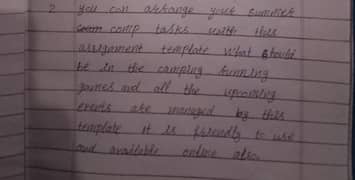 2. you can arrange your summer
camp tasks with this
assignment template what should
be in the camping running
games and all the upcoming
events are managed by this
template it is friendly to use
and available online also.